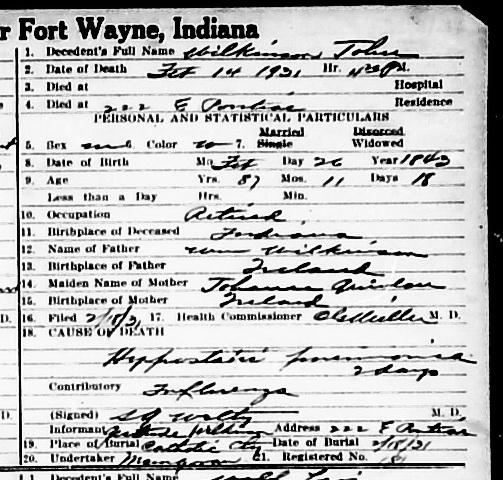 r Fort Wayne, Indiana
1. Decedent's Full Name Wilkinson John
2. Date of Death Feb 14 1921 Hr. M.
3. Died at Hospital
4. Died at 222 E Pontiac Residence
PERSONAL AND STATISTICAL PARTICULARS
Married Divorced
5. Sex m 6. Color w 7. Single Widowed
8. Date of Birth Mo. Feb Day 26 Year 1843
9. Age Yrs. 87 Mos. 11 Days 18
Less than a Day Hrs. Min.
10. Occupation Retired
11. Birthplace of Deceased Indiana
12. Name of Father Wm Wilkinson
13. Birthplace of Father Ireland
14. Maiden Name of Mother Johanna Quinlan
15. Birthplace of Mother Ireland
16. Filed 2/18/21 17. Health Commissioner M. D.
18. CAUSE OF DEATH
Hyppostatic pneumonia
2 days
Contributory Influenza
D. (Signed) M. D.
Informant Wilkinson Address 222 E Pontiac
19. Place of Burial Catholic Date of Burial 2/18/21
20. Undertaker 21. Registered No.
D. 1. Decedent's Full Name